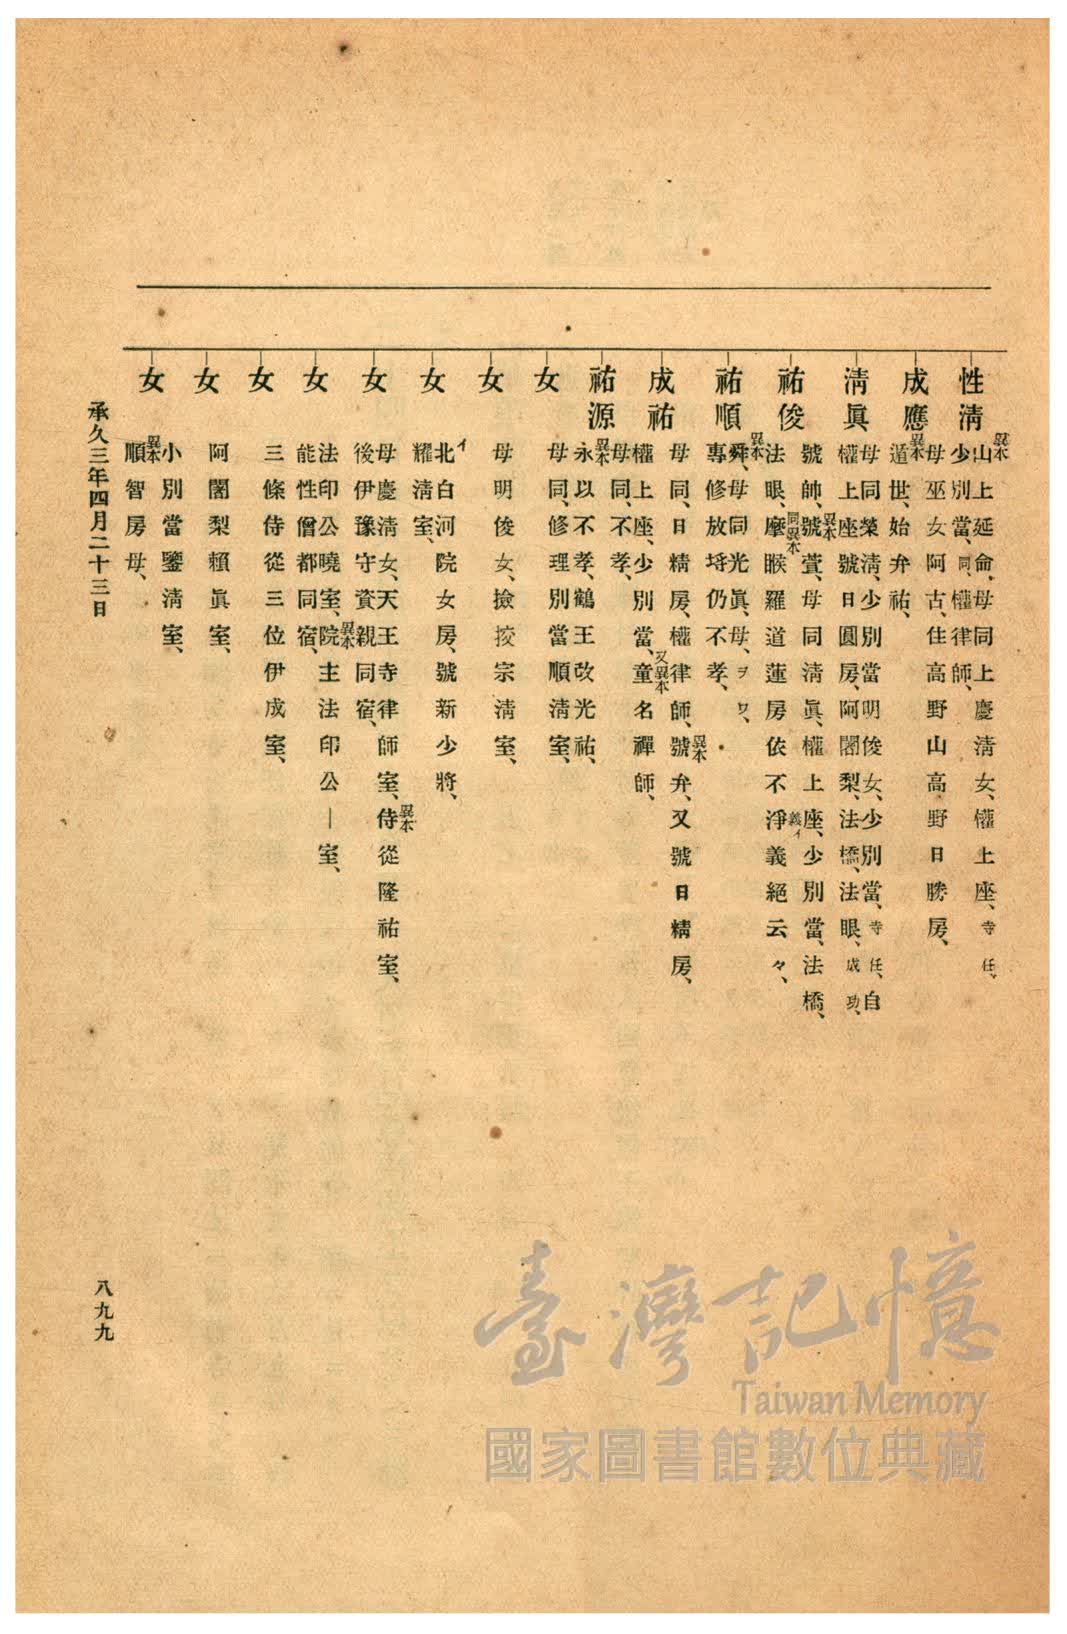 性清
異本
山上延命、母同上慶清女、權上座、寺任、
少別當、同、權律師、
成應
母巫女阿古、住高野山高野日勝房、
異本
遁世、始弁祐、
清眞
母同榮清、少別當明俊女、少別當、寺任、自
權上座號日圓房、阿闍梨、法橋、法眼、成功、
祐俊
異本
號帥、號萱、母同清眞、權上座、少別當、法橋、
同異本
義イ
法眼、麼睺羅道蓮房依不淨義絕云々、
祐順
異本
舜、母同光眞、母、ヲワ、
專修放埓仍不孝、
成祐
異本
母同、日精房、權律師、號弁、又號日精房、
又異本
權上座、少別當、童名禪師、
祐源
母同、不孝、
異本
永以不孝、鶴王改光祐、
女
母同、修理別當順清室、
女
母明俊女、撿挍宗清室、
女
イ
北白河院女房、號新少將、
耀清室、
女
異本
母慶清女、天王寺律師室、侍從隆祐室、
後伊豫守資親同宿、
女
異本
法印公曉室、院主法印公―室、
能性僧都同宿、
女
三條侍從三位伊成室、
女
阿闍梨賴眞室、
女
小別當鑒清室、
異本
順智房母、
承久三年四月二十三日
八九九
臺灣記憶
Taiwan Memory
國家圖書館數位典藏